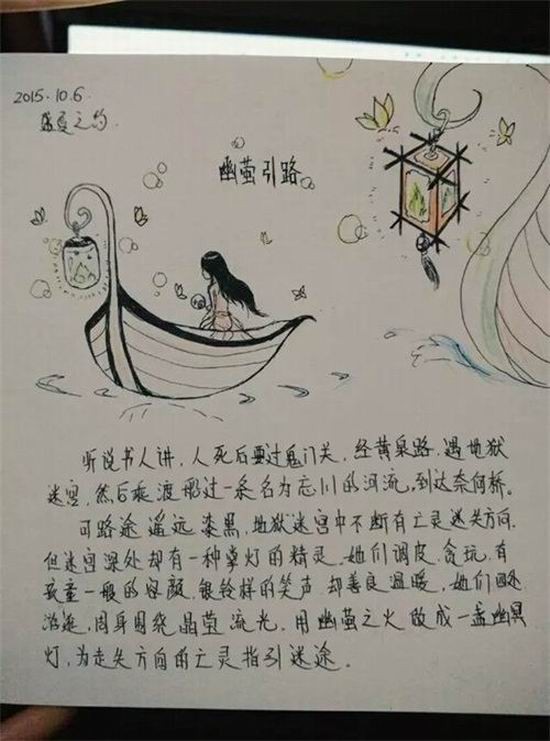 2015.10.6
盛夏之约.
幽萤引路
听说书人讲,人死后要过鬼门关,经黄泉路,遇地狱
迷宫,然后乘渡船过一条名为忘川的河流,到达奈何桥。
可路途遥远漆黑,地狱迷宫中不断有亡灵迷失方向.
但迷宫深处却有一种掌灯的精灵.她们调皮.贪玩.有
孩童一般的容颜.银铃样的笑声.却善良温暖,她们四处
游逛,周身围绕晶莹流光。用幽萤之火做成一盏幽冥
灯,为走失方向的亡灵指引迷途。